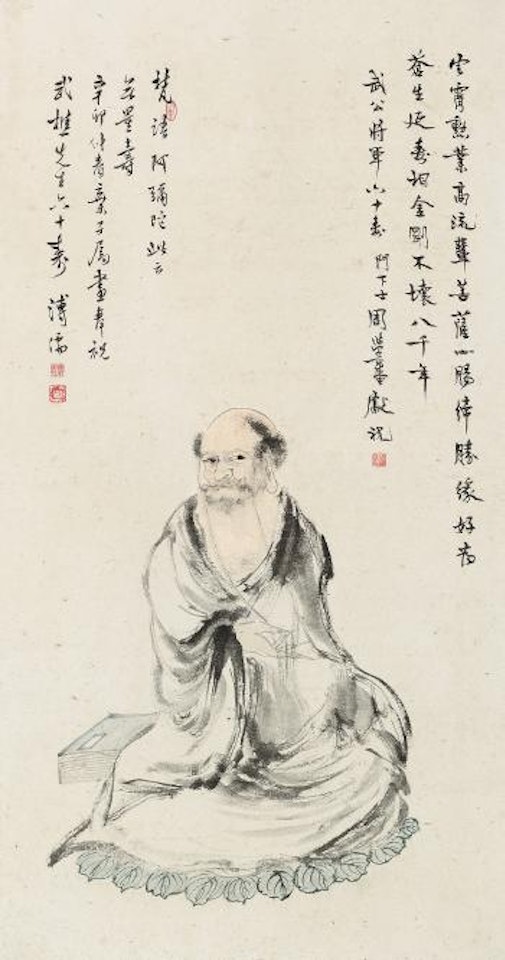 雲霄勲業高流輩菩薩心腸締勝緣好為
蒼生延壽相金剛不壞八千年
武公將軍六十壽 門下士周學藩獻祝
梵語阿彌陀此云
無量壽
辛卯仲春棄子屬畫奉祝
武樵先生六十壽 溥儒